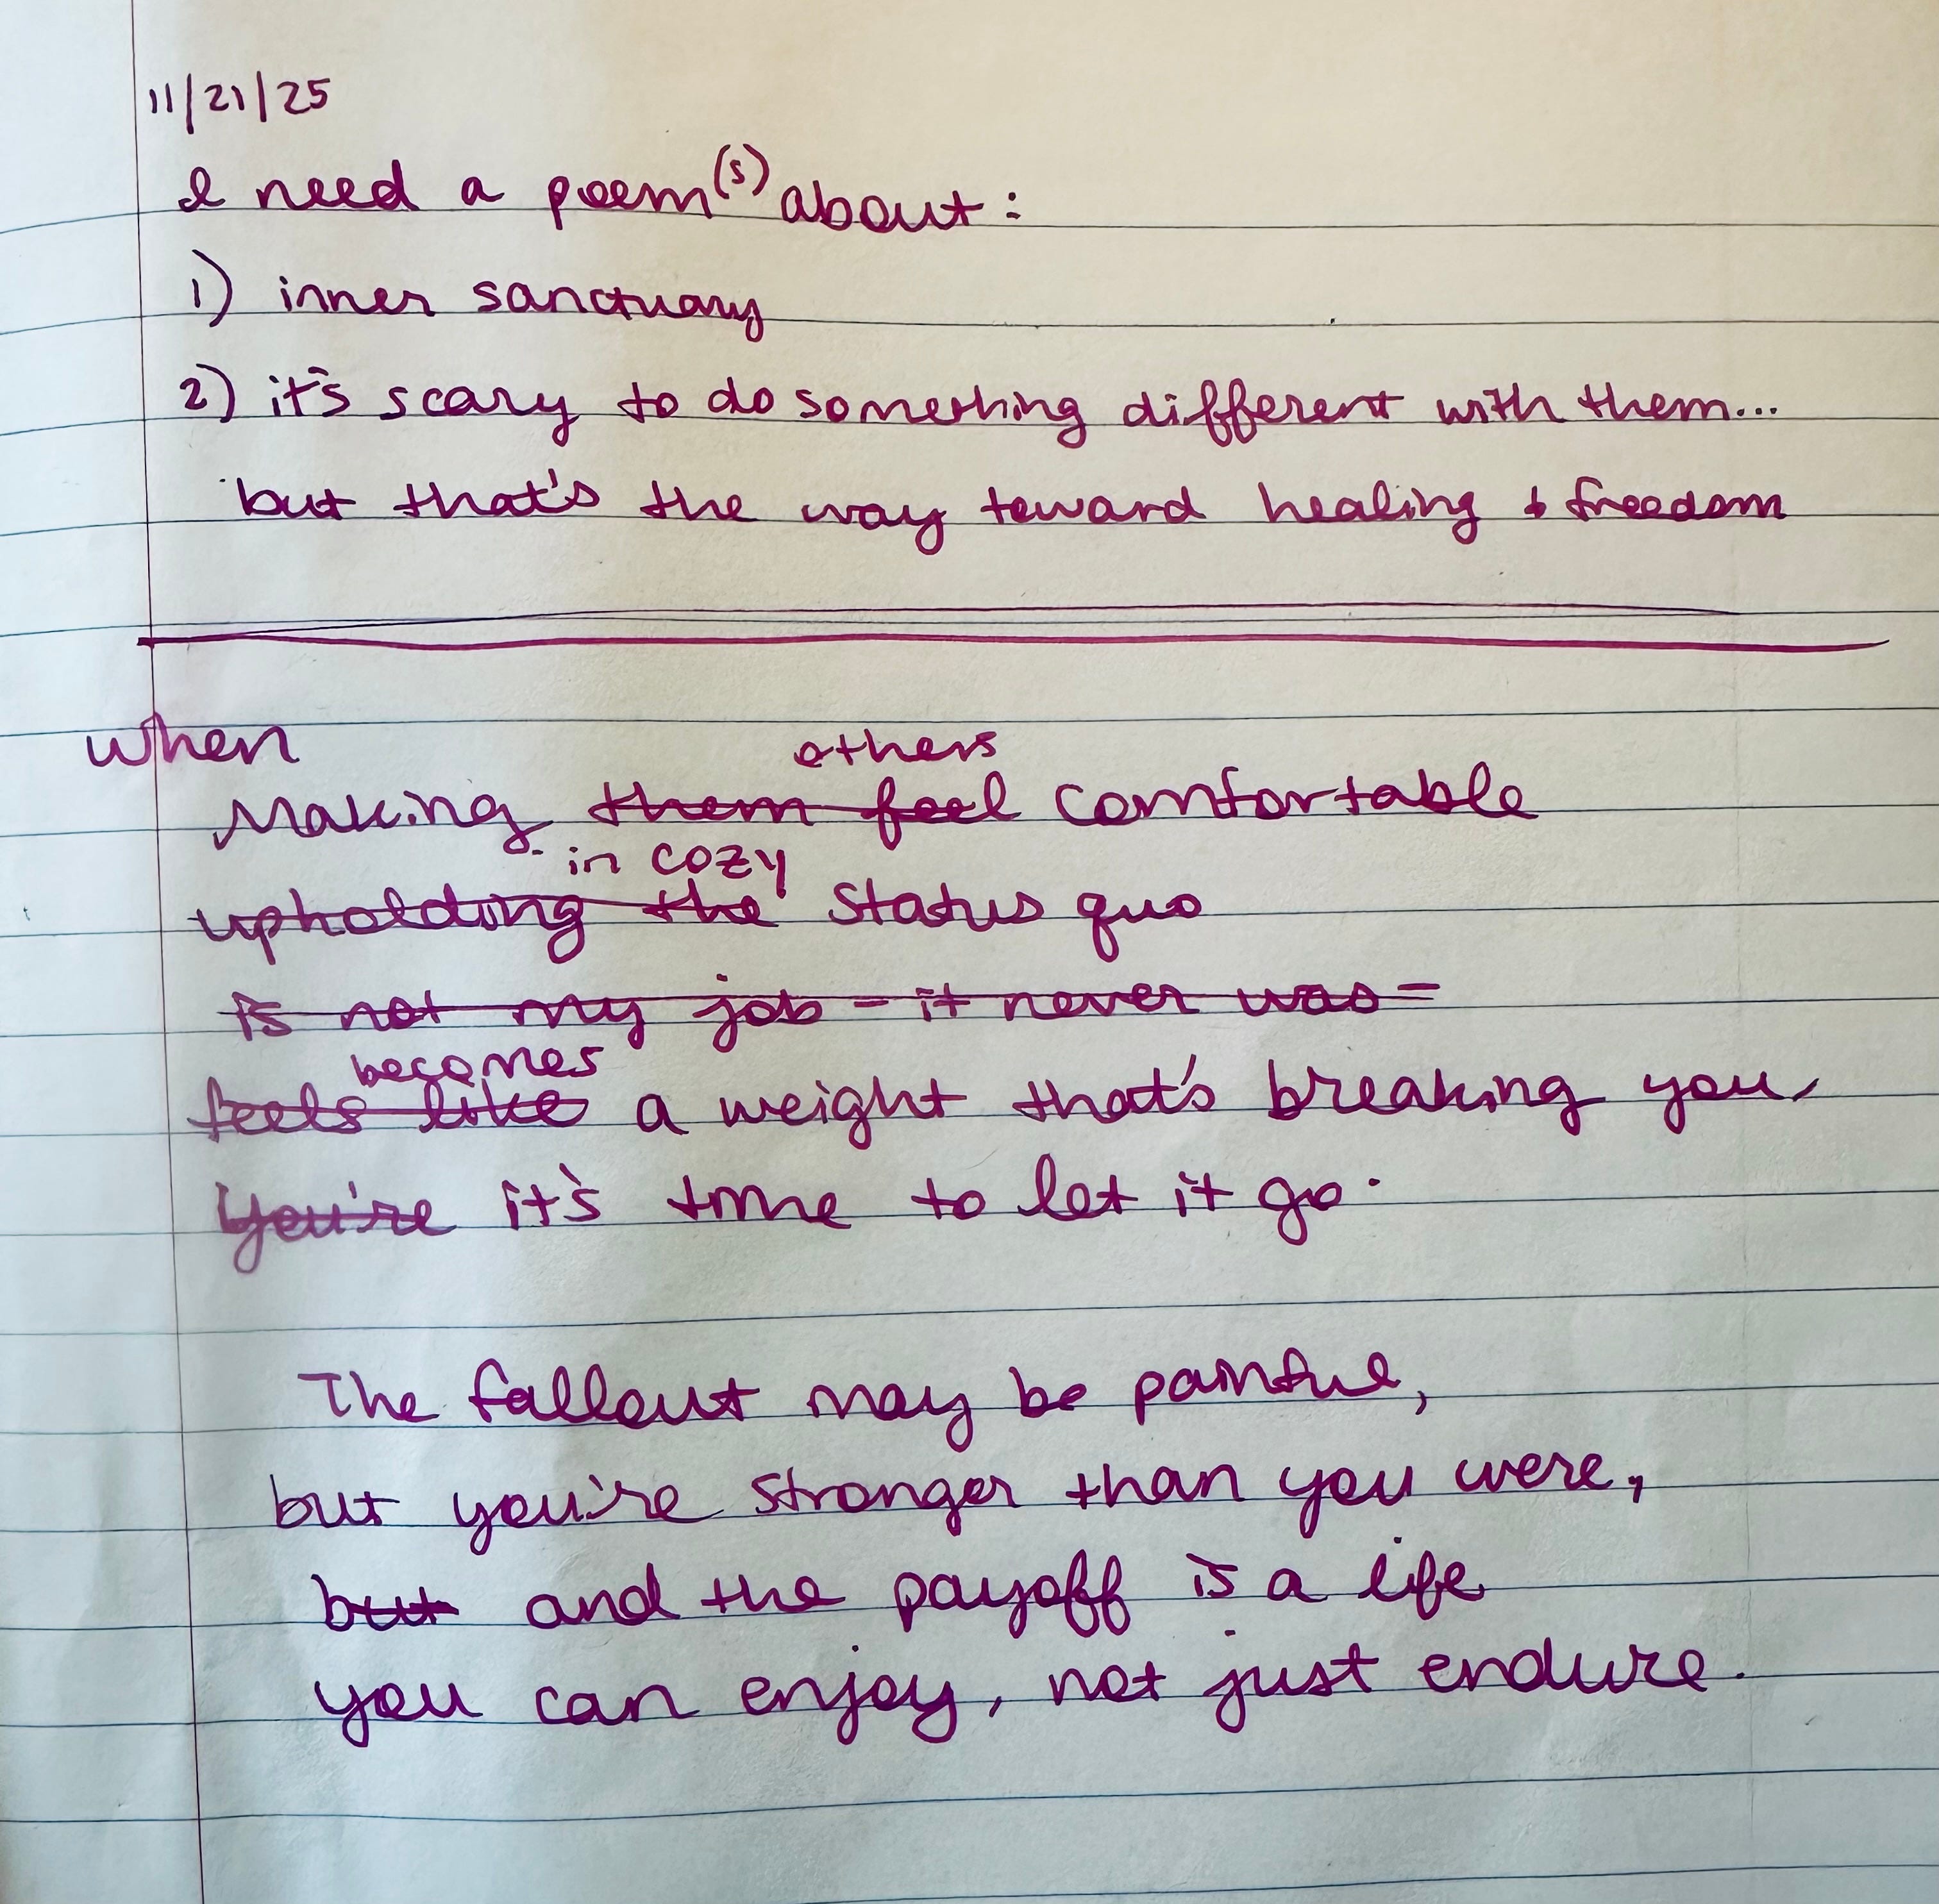 11/21/25
I need a poem(s) about:
1) inner sanctuary
2) it's scary to do something different with them...
but that's the way toward healing & freedom
when
others
Making them feel comfortable
in cozy
upholding the status quo
is not my job - it never was -
becomes
feels like a weight that's breaking you,
you're it's time to let it go.
The fallout may be painful,
but you're stronger than you were,
but and the payoff is a life
you can enjoy, not just endure.